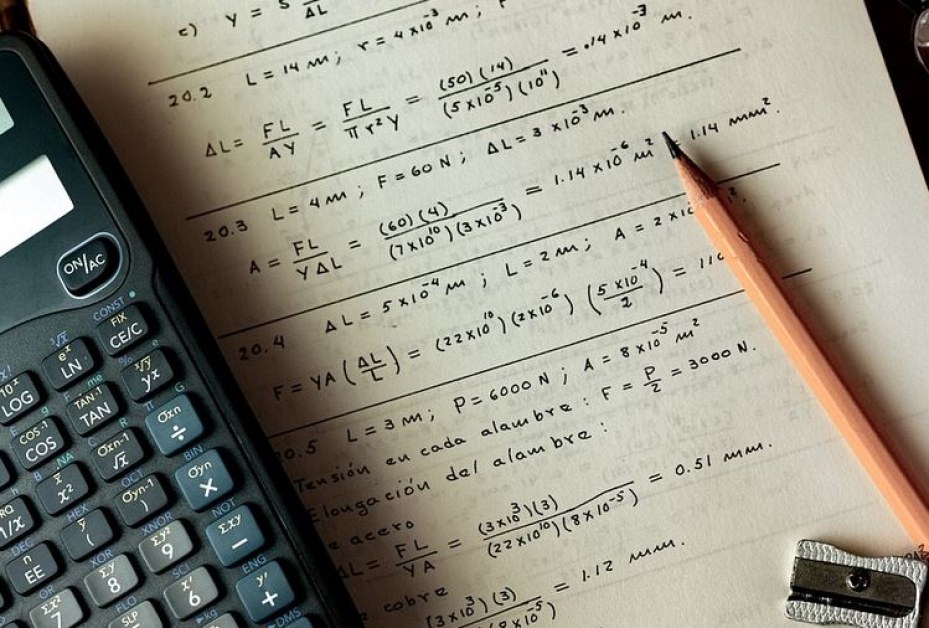 c) y = 5 / ΔL
20.2 L = 14 m ; r = 4 x 10⁻³ m ;
ΔL = FL / AY = FL / π r² Y = (50)(14) / (5 x 10⁻⁵)(10¹¹) = .14 x 10⁻³ m.
20.3 L = 4 m ; F = 60 N ; ΔL = 3 x 10⁻³ m.
A = FL / Y ΔL = (60)(4) / (7 x 10¹⁰)(3 x 10⁻³) = 1.14 x 10⁻⁶ m² = 1.14 mm².
20.4 ΔL = 5 x 10⁻⁴ m ; L = 2 m ; A = 2 x 10
F = YA (ΔL / L) = (22 x 10¹⁰)(2 x 10⁻⁶) (5 x 10⁻⁴ / 2) = 110
0.5 L = 3 m ; P = 6000 N ; A = 8 x 10⁻⁵ m²
Tensión en cada alambre : F = P / 2 = 3000 N.
Elongación del alambre :
e acero
ΔL = FL / YA = (3 x 10³)(3) / (22 x 10¹⁰)(8 x 10⁻⁵) = 0.51 mm.
cobre
(3 x 10³)(3) / (8 x 10⁻⁵) = 1.12 mm.
ON/AC
CONST
FIX
CE/C
³√x
eˣ
LN
ˣ√y
yˣ
10ˣ
LOG
me
TAN⁻¹
TAN
G
σxn
÷
COS⁻¹
COS
σxn-1
√x
BIN
σyn
×
NA
x̄
x²
OCT
σyn-1
)
NOT
Σxy
−
1/x
HEX
ȳ
(
XNOR
Σy²
9
DEC
n
EE
XOR
Σy
8
SCI
x'
6
ENG
y'
+
OR
Σx²
7
FLO
SLP
kg
DMS